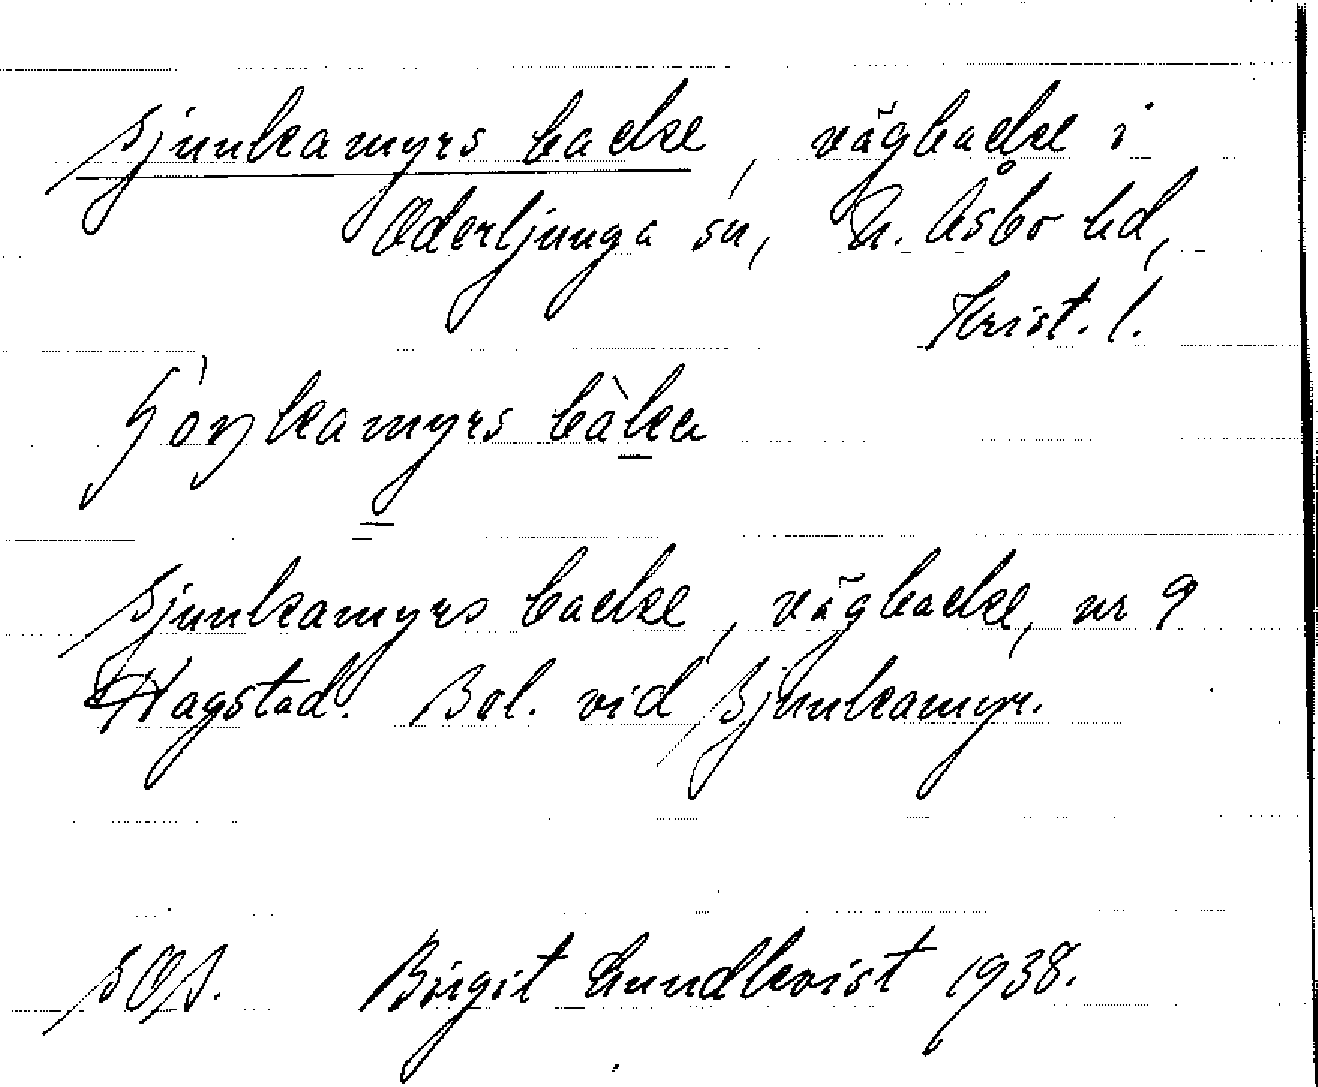 Sjunkamyrs backe, vägbacke i
Oderljunga sn, N. Åsbo hd,
Krist. l.
backe
Sjunkamyrs backe, vägbacke, nr 9
Hagstad. Bel. vid Sjunkamyr.
SOS. Birgit Lundkvist 1938.